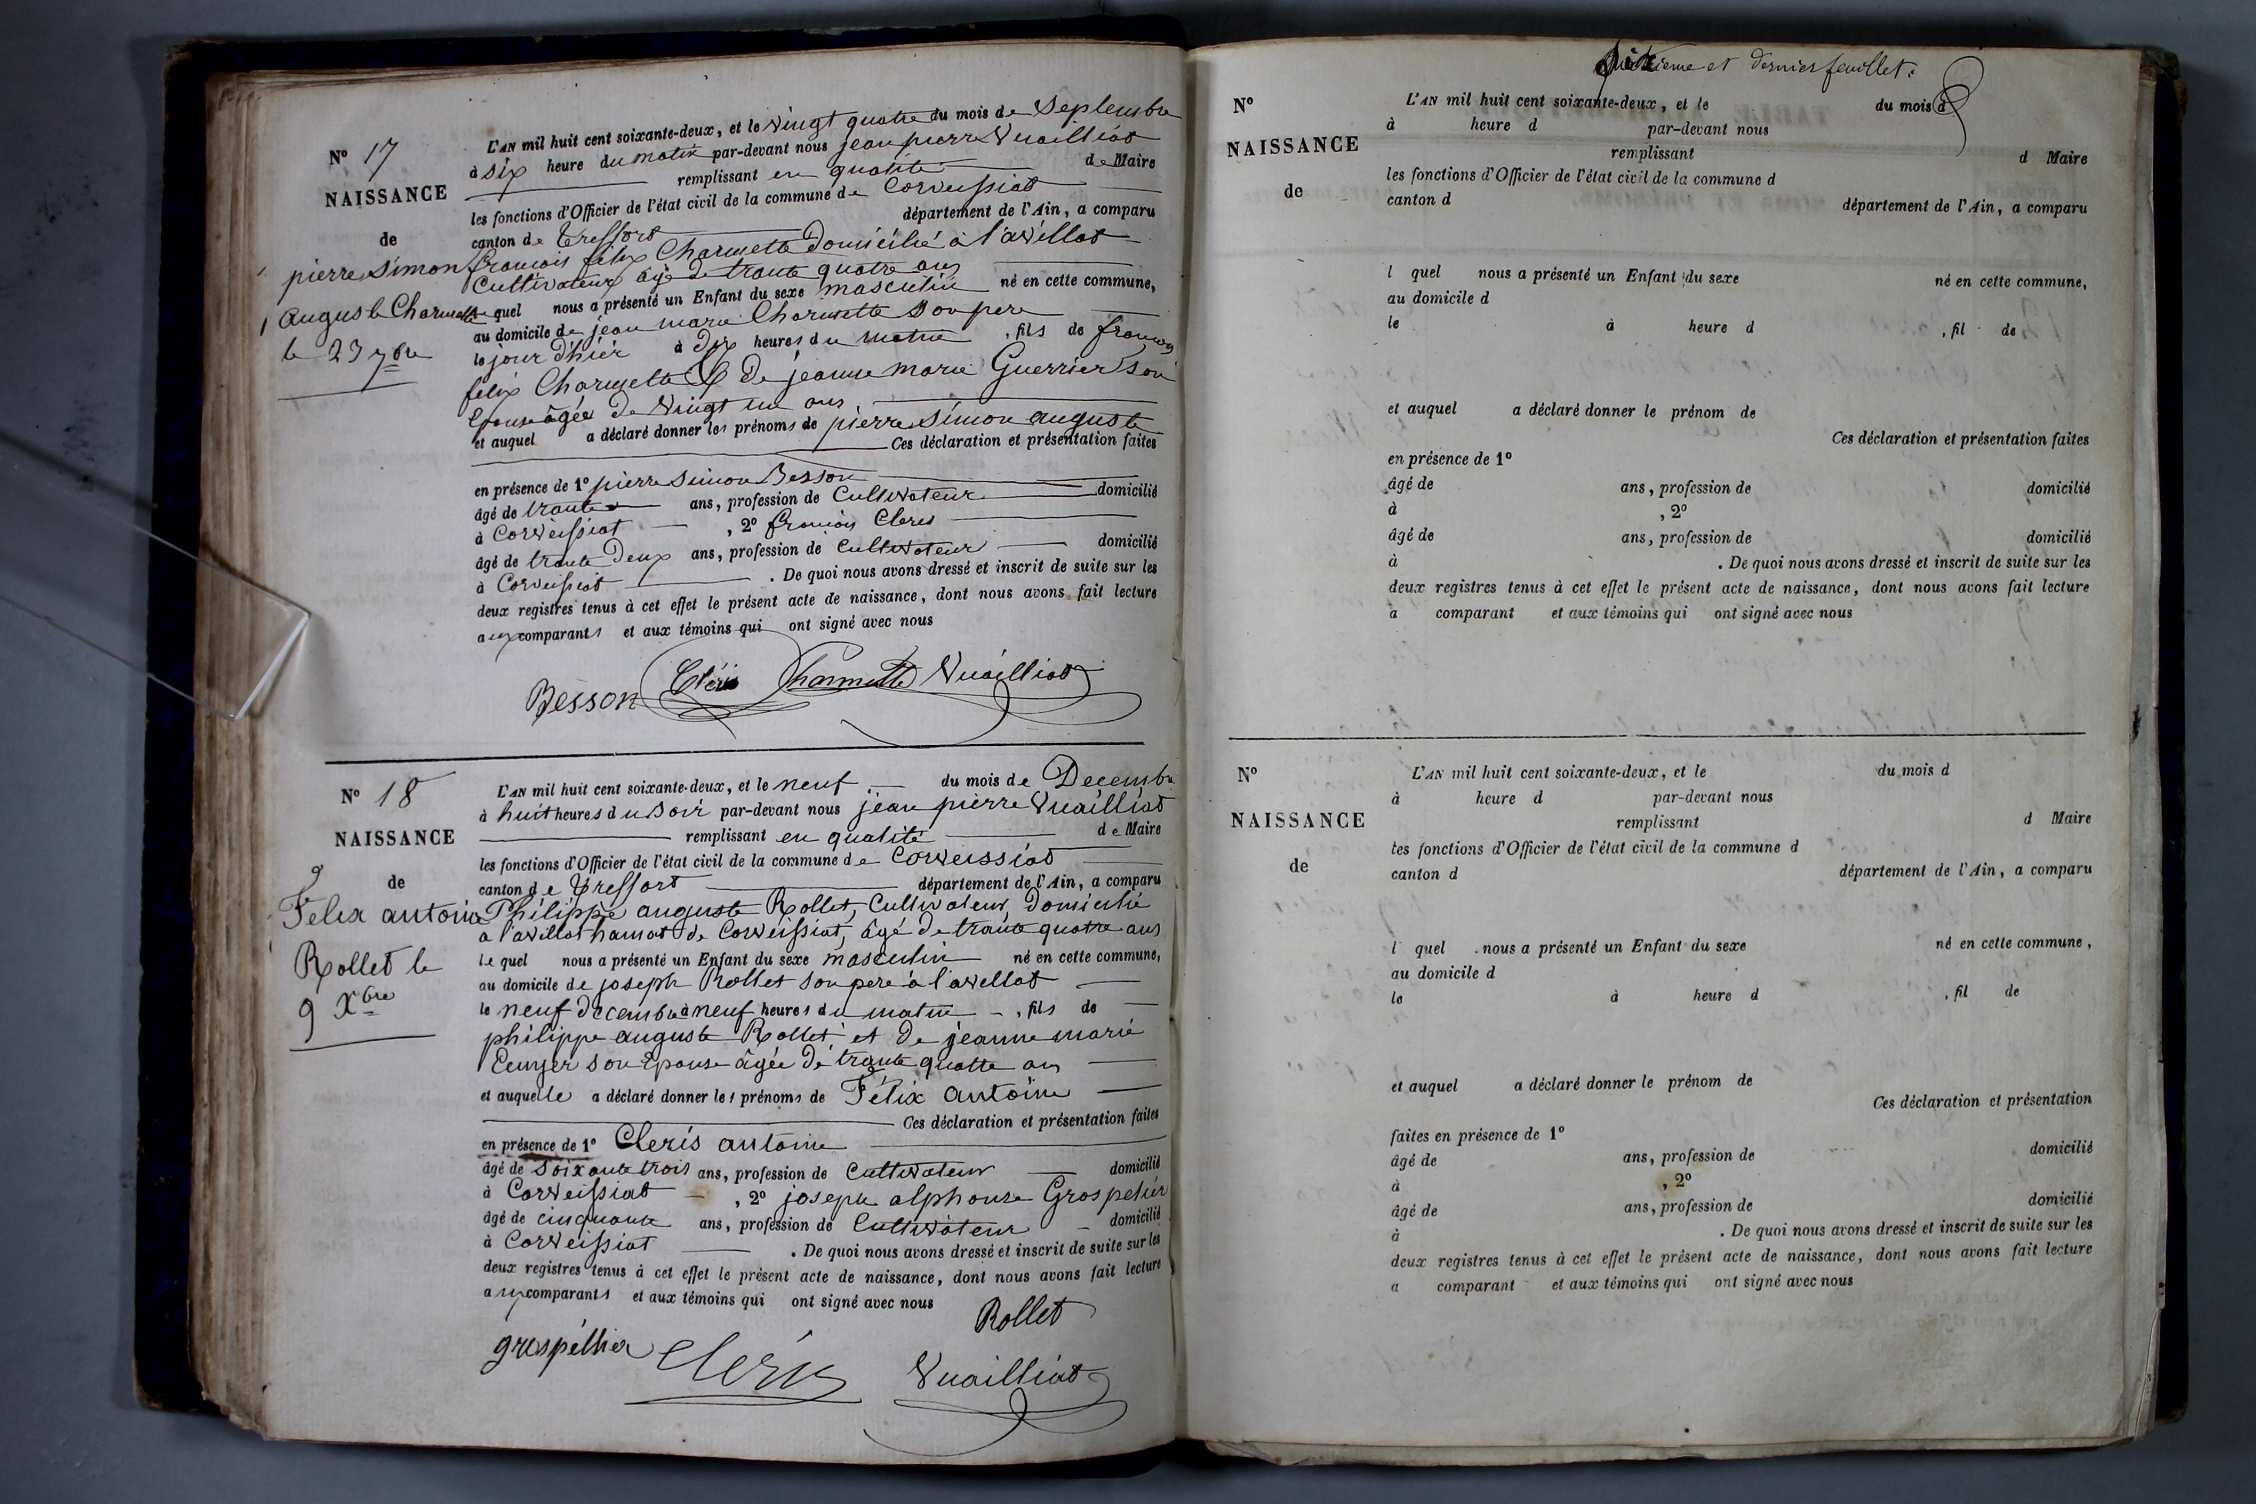 N° 17
NAISSANCE
de
pierre Simon
auguste Charmette
le 23 7bre
L'AN mil huit cent soixante-deux, et le Vingt quatre du mois de Septembre
à six heure du matin par-devant nous jean pierre Vuailliat
remplissant en qualité de Maire
les fonctions d'Officier de l'état civil de la commune de Corveissiat
canton de Treffort département de l'Ain, a comparu
francois felix Charmette Domicilié à l'avellat
Cultivateur âgé de trante quatre ans
le quel nous a présenté un Enfant du sexe masculin né en cette commune,
au domicile de jean marie Charmette son pere
le jour d'hier à dix heures du matin, fils de francois
felix Charmette & de jeanne marie Guerrier son
Epouse âgée de Vingt un ans
et auquel a déclaré donner les prénoms de pierre Simon auguste
Ces déclaration et présentation faites
en présence de 1° pierre Simon Besson
âgé de trante ans, profession de Cultivateur domicilié
à Corveissiat, 2° francois Cleris
âgé de trante Deux ans, profession de Cultivateur domicilié
à Corveissiat. De quoi nous avons dressé et inscrit de suite sur les
deux registres tenus à cet effet le présent acte de naissance, dont nous avons fait lecture
aux comparants et aux témoins qui ont signé avec nous
Besson Cléris Charmette Vuailliat
N° 18
NAISSANCE
de
Félix antoine
Rollet le
9 Xbre
L'AN mil huit cent soixante-deux, et le neuf du mois de Decembre
à huit heures du Soir par-devant nous jean pierre Vuailliat
remplissant en qualité de Maire
les fonctions d'Officier de l'état civil de la commune de Corveissiat
canton de Treffort département de l'Ain, a comparu
Philippe auguste Rollet, Cultivateur, Domicilié
a l'avellat hamot de Corveissiat, âgé de trante quatre ans
Le quel nous a présenté un Enfant du sexe masculin né en cette commune,
au domicile de joseph Rollet son pere à l'avellat
le neuf decembre à neuf heures du matin, fils de
philippe auguste Rollet et de jeanne marie
son Epouse âgée de trante quatre ans
et auquelle a déclaré donner les prénoms de Félix antoine
Ces déclaration et présentation faites
en présence de 1° Cleris antoine
âgé de Soixante trois ans, profession de Cultivateur domicilié
à Corveissiat, 2° joseph alphonse Grospelier
âgé de cinquante ans, profession de Cultivateur domicilié
à Corveissiat. De quoi nous avons dressé et inscrit de suite sur les
deux registres tenus à cet effet le présent acte de naissance, dont nous avons fait lecture
aux comparants et aux témoins qui ont signé avec nous
Rollet
grospéllier Cléris Vuailliat
et dernier feuillet.
N°
NAISSANCE
de
L'AN mil huit cent soixante-deux, et le du mois d
à heure d par-devant nous
remplissant d Maire
les fonctions d'Officier de l'état civil de la commune d
canton d département de l'Ain, a comparu
l quel nous a présenté un Enfant du sexe né en cette commune,
au domicile d
le à heure d , fil de
et auquel a déclaré donner le prénom de
Ces déclaration et présentation faites
en présence de 1°
âgé de ans, profession de domicilié
à , 2°
âgé de ans, profession de domicilié
à . De quoi nous avons dressé et inscrit de suite sur les
deux registres tenus à cet effet le présent acte de naissance, dont nous avons fait lecture
a comparant et aux témoins qui ont signé avec nous
N°
NAISSANCE
de
L'AN mil huit cent soixante-deux, et le du mois d
à heure d par-devant nous
remplissant d Maire
les fonctions d'Officier de l'état civil de la commune d
canton d département de l'Ain, a comparu
l quel nous a présenté un Enfant du sexe né en cette commune,
au domicile d
le à heure d , fil de
et auquel a déclaré donner le prénom de
Ces déclaration et présentation
faites en présence de 1°
âgé de ans, profession de domicilié
à , 2°
âgé de ans, profession de domicilié
à . De quoi nous avons dressé et inscrit de suite sur les
deux registres tenus à cet effet le présent acte de naissance, dont nous avons fait lecture
a comparant et aux témoins qui ont signé avec nous